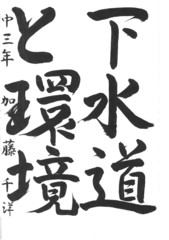 下水道
と環境
中三年 加藤千洋